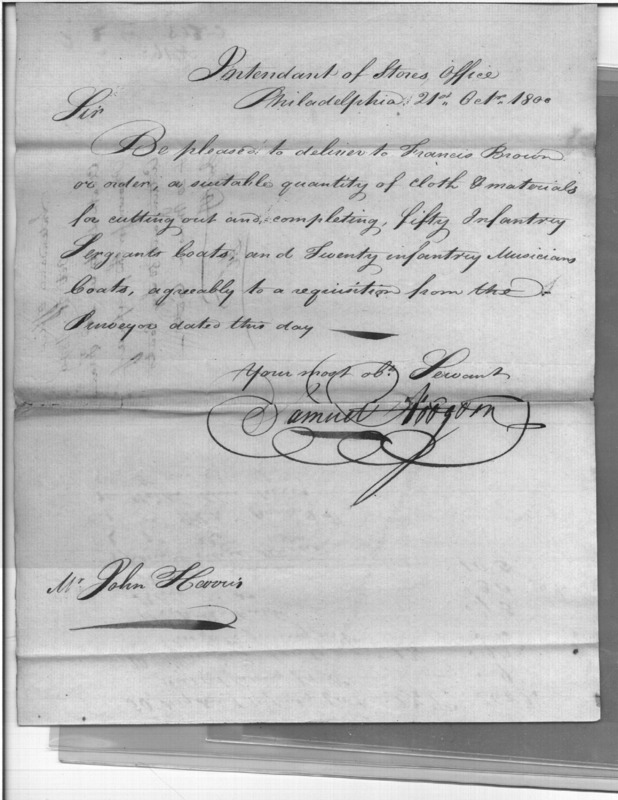 Intendant of Stores Office
Philadelphia 21st Octr. 1800
Sir
Be pleased to deliver to Francis Brown
or order, a suitable quantity of cloth & materials
for cutting out and completing, fifty Infantry
Sergeants Coats, and Twenty infantry Musicians
Coats, agreably to a requisition from the
Purveyor dated this day
Your most obt. Servant
Samuel Hodgdon
Mr John Harris